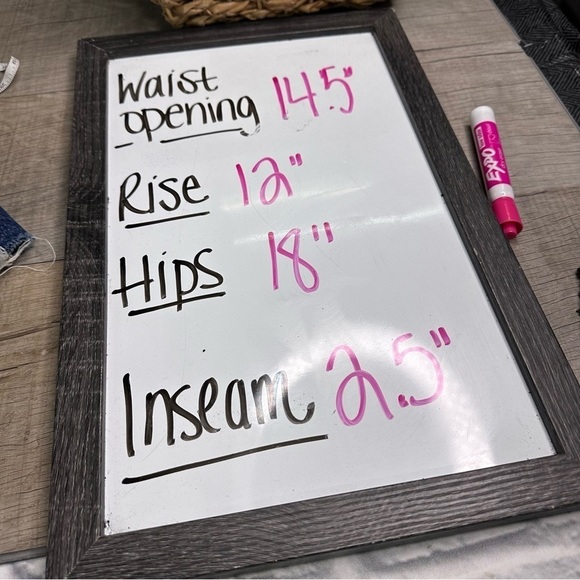 Waist
opening 14.5"
Rise 12"
Hips 18"
Inseam 2.5"
EXPO